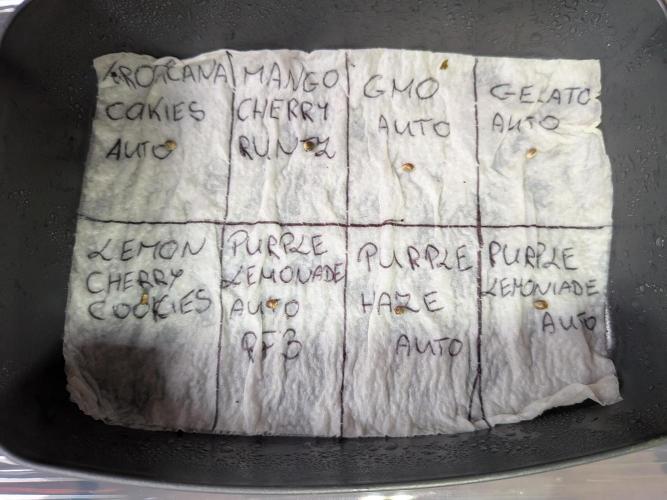 TROPICANA
COOKIES
AUTO
MANGO
CHERRY
RUNTZ
GMO
AUTO
GELATO
AUTO
LEMON
CHERRY
COOKIES
PURPLE
LEMONADE
AUTO
RF3
PURPLE
HAZE
AUTO
PURPLE
LEMONIADE
AUTO